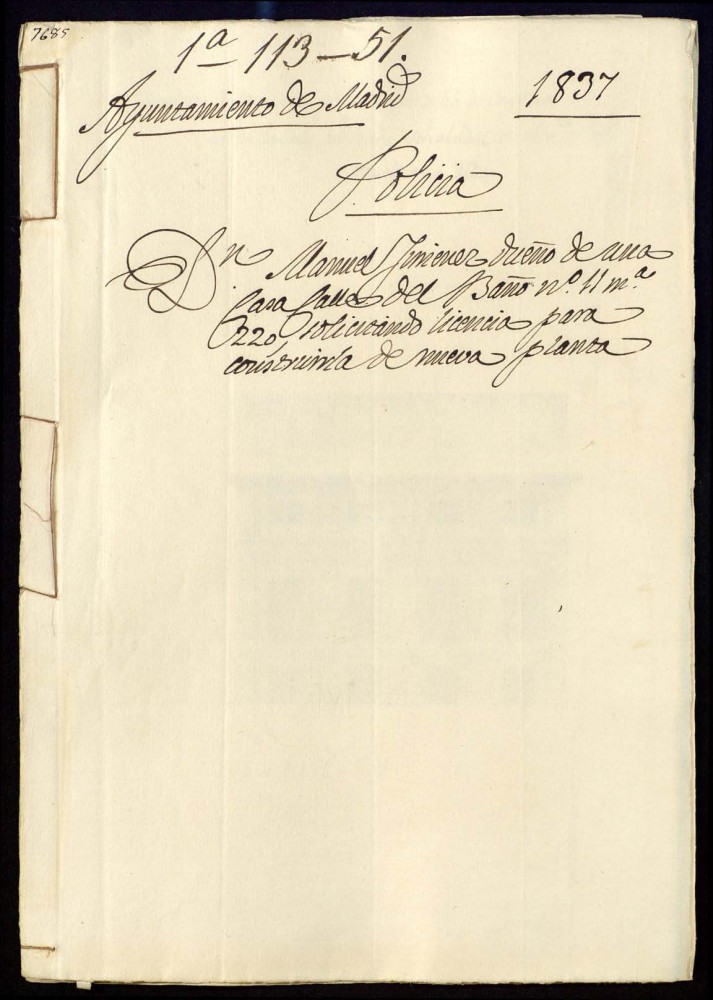 7685
1ª - 113 - 51.
Ayuntamiento de Madrid
1837
Policia
Dn Manuel Jimenez dueño de una
Casa Calle del Baño nº. 11 m.ª
220, solicitando licencia para
construirla de nueva planta